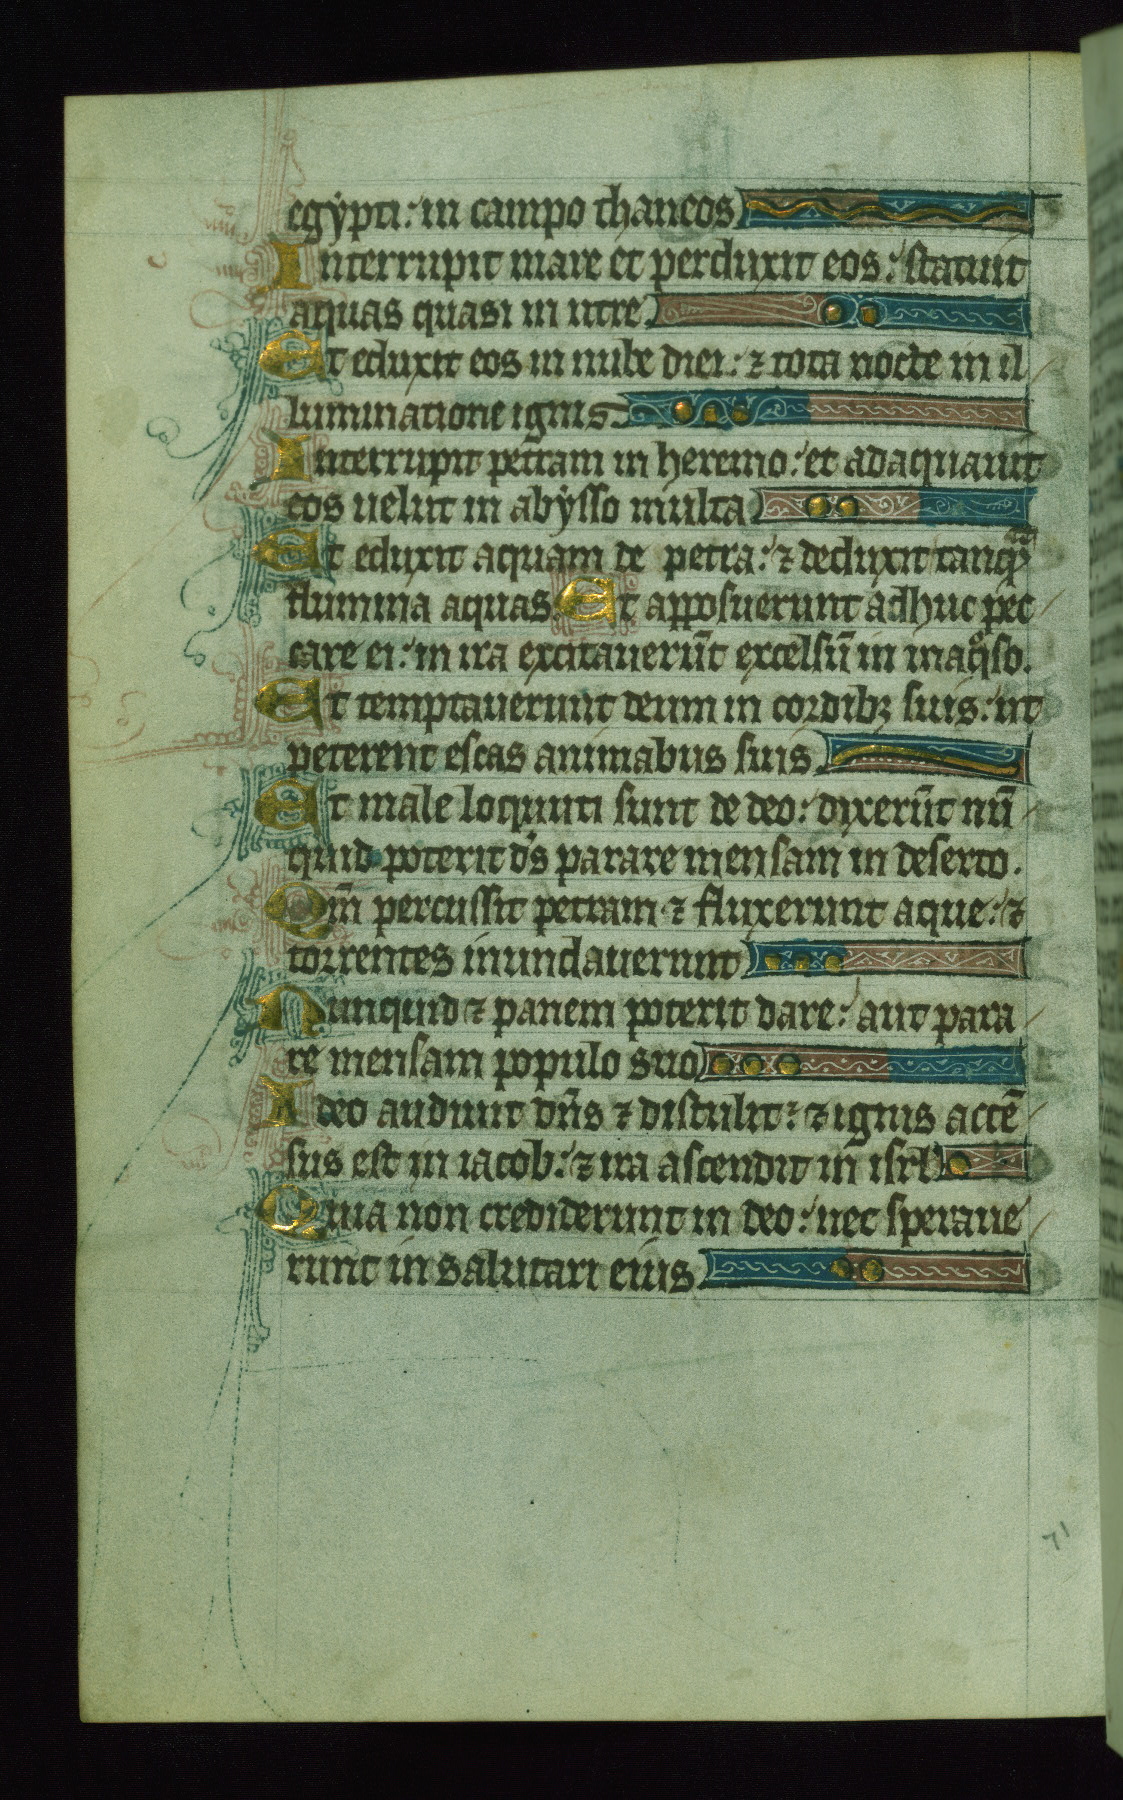 egẏpti: in campo thaneos
Interrupit mare et perduxit eos: statuit
aquas quasi in utre.
Et eduxit eos in nube diei: ⁊ tota nocte in il
luminatione ignis.
Interrupit petram in heremo: et adaquauit
eos uelut in abẏsso multa
Et eduxit aquam de petra: ⁊ deduxit tanqͣ̃
flumina aquas. Et apposuerunt adhuc pec
care ei: in ira excitauerūt excelsū in inaqͦso.
Et temptauerunt deum in cordibꝫ suis: ut
peterent escas animabus suis
Et male loquuti sunt de deo: dixerūt nū
quid poterit dˢ parare mensam in deserto.
Qm̄ percussit petram ⁊ fluxerunt aque: ⁊
torrentes inundauerunt
Nunquid ⁊ panem poterit dare: aut para
re mensam populo suo
Ideo audiuit dn̄s ⁊ distulit: ⁊ ignis accē
sus est in iacob: ⁊ ira ascendit in isrl̄
Quia non crediderunt in deo: nec speraue
runt in salutari eius
71